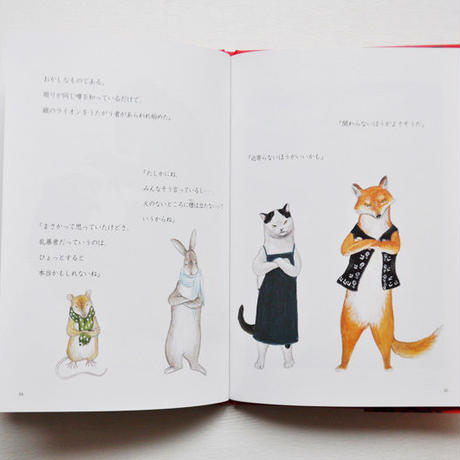 おかしなものである。
周りが同じ噂を知っているだけで、
銀のライオンをうたがう者があらわれ始めた。
「まさかって思っていたけどさ、
乱暴者だっていうのは、
ひょっとすると
本当かもしれないね」
「たしかにね、
みんなそう言っているし…、
火のないところに煙は立たないって
いうからね」
「近寄らないほうがいいかも」
「関わらないほうがよさそうだ」